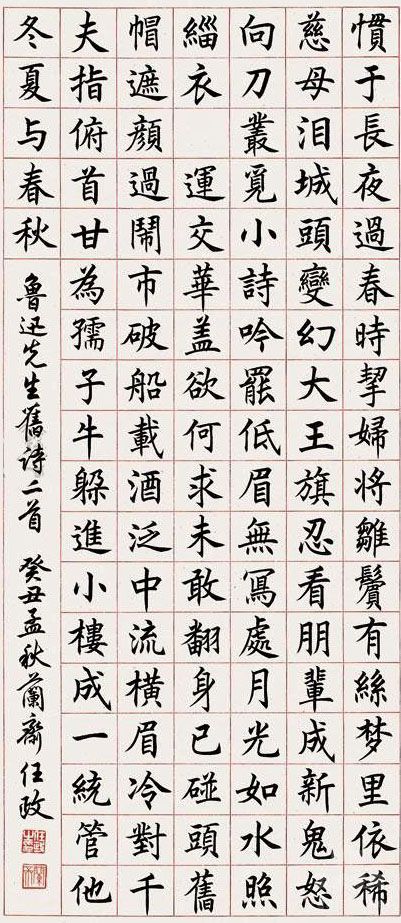 慣于長夜過春時挈婦将雛鬢有絲梦里依稀
慈母泪城頭變幻大王旗忍看朋輩成新鬼怒
向刀叢覓小詩吟罷低眉無寫處月光如水照
緇衣 運交華盖欲何求未敢翻身已碰頭舊
帽遮顔過鬧市破船載酒泛中流橫眉冷對千
夫指俯首甘為孺子牛躲進小樓成一統管他
冬夏与春秋 魯迅先生舊詩二首 癸丑孟秋蘭齋任政